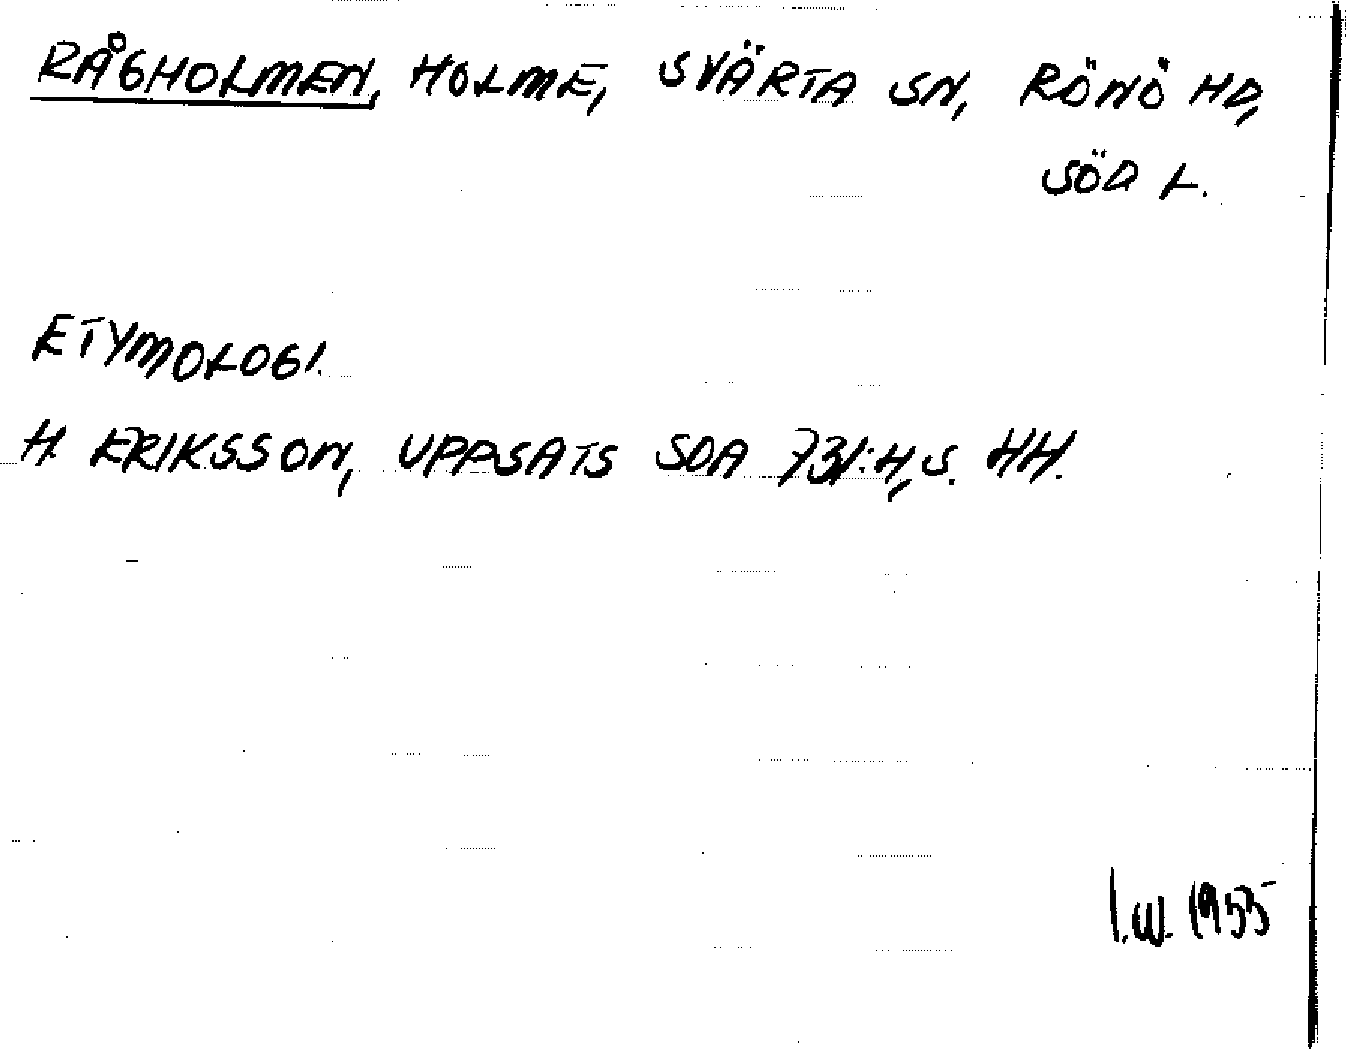 RÅGHOLMEN, HOLME, SVÄRTA SN, RÖNÖ HD,
SÖD L.
ETYMOLOGI.
H. ERIKSSON, UPPSATS SOA 731:4, S. 44.
I.W. 1955